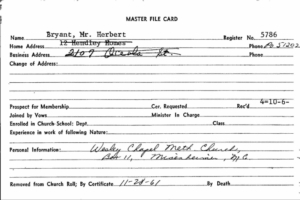 MASTER FILE CARD
Name Bryant, Mr. Herbert Register No. 5786
Home Address 12 Hendley Homes Phone
Business Address 2407 St. Phone
Change of Address:
4-10-6-
Prospect for Membership Cor. Requested Rec'd
Joined by Vows Minister In Charge
Enrolled in Church School: Dept. Class
Experience in work of following Nature:
Personal Information: Wesley Chapel Meth Church,
Box 11, Misenheimer, N.C.
Removed from Church Roll; By Certificate 11-28-61 By Death